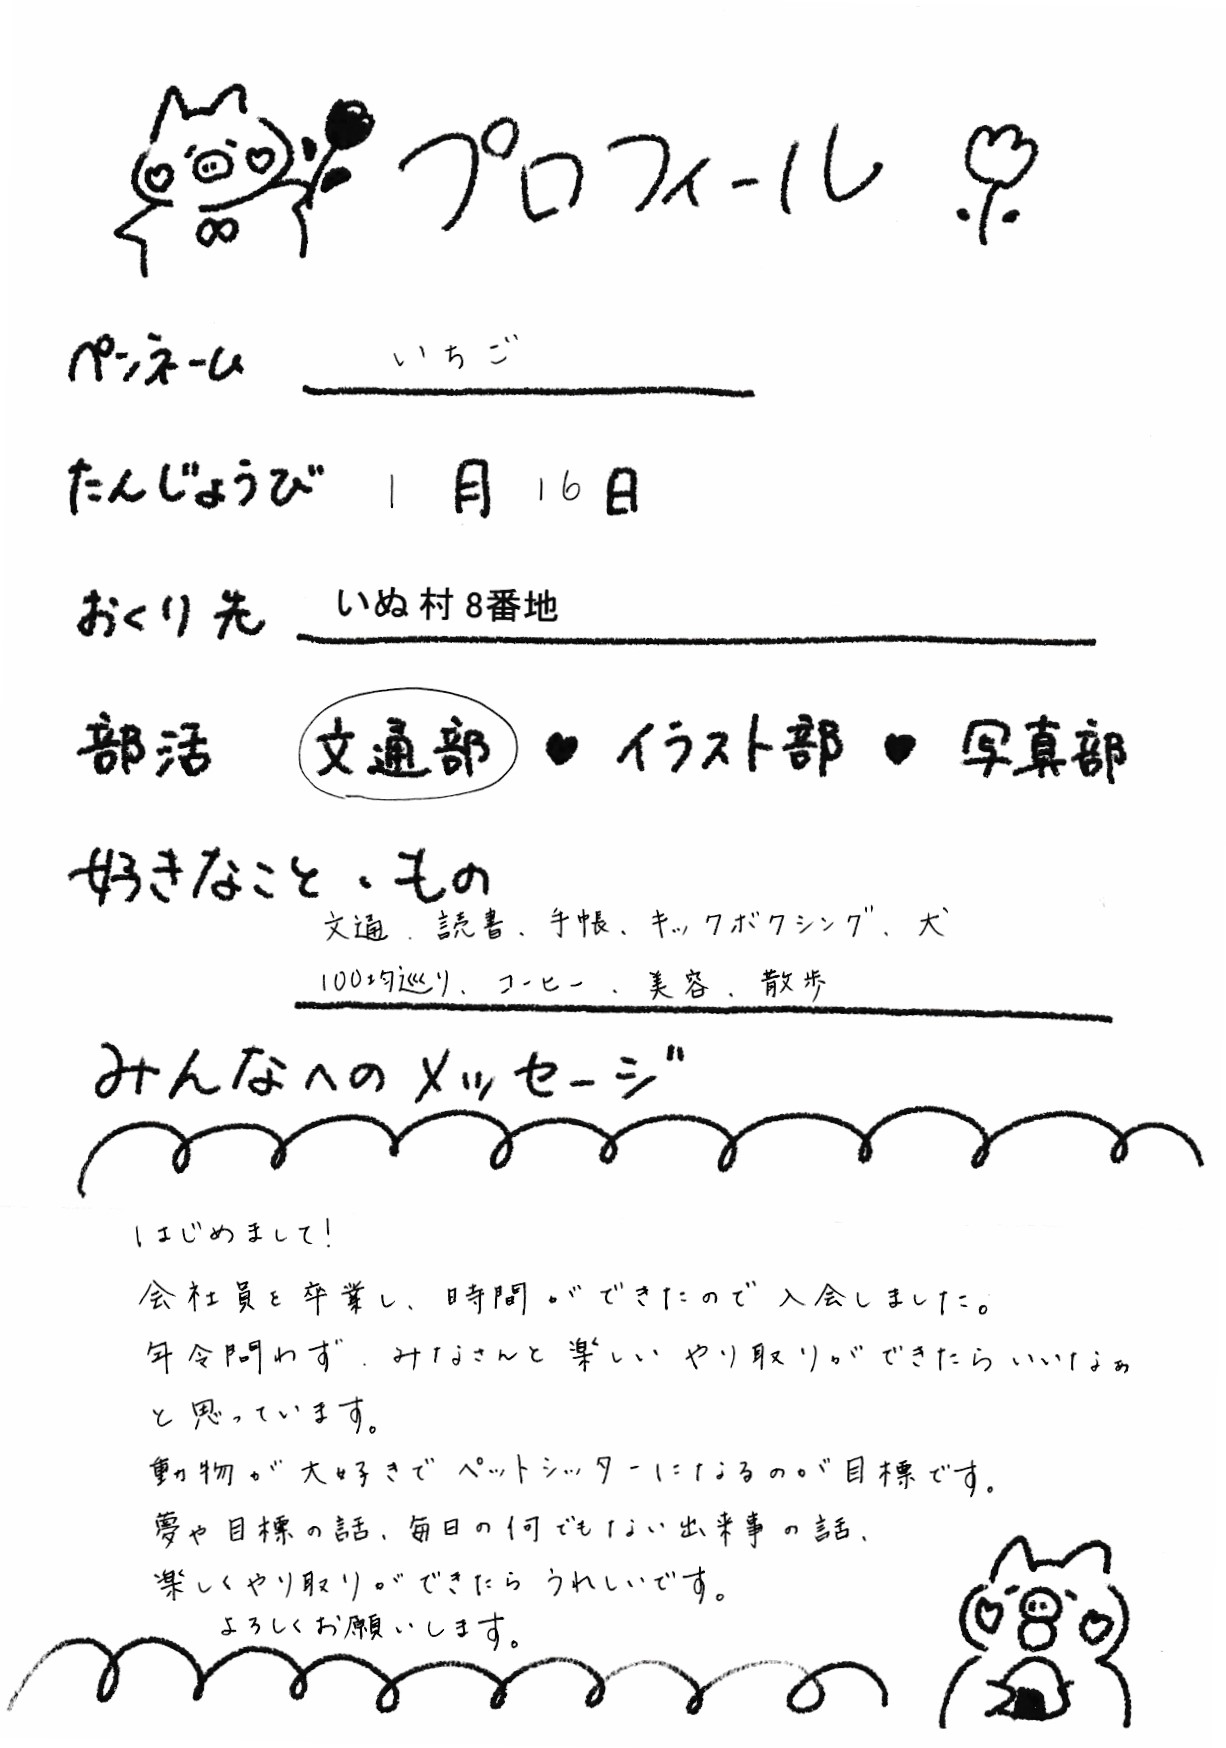 プロフィール
ペンネーム いちご
たんじょうび 1月16日
おくり先 いぬ村8番地
部活 文通部 ♥ イラスト部 ♥ 写真部
好きなこと・もの
文通、読書、手帳、キックボクシング、犬
100均巡り、コーヒー、美容、散歩
みんなへのメッセージ
はじめまして!
会社員を卒業し、時間ができたので入会しました。
年令問わず、みなさんと楽しいやり取りができたらいいなぁ
と思っています。
動物が大好きでペットシッターになるのが目標です。
夢や目標の話、毎日の何でもない出来事の話、
楽しくやり取りができたらうれしいです。
よろしくお願いします。